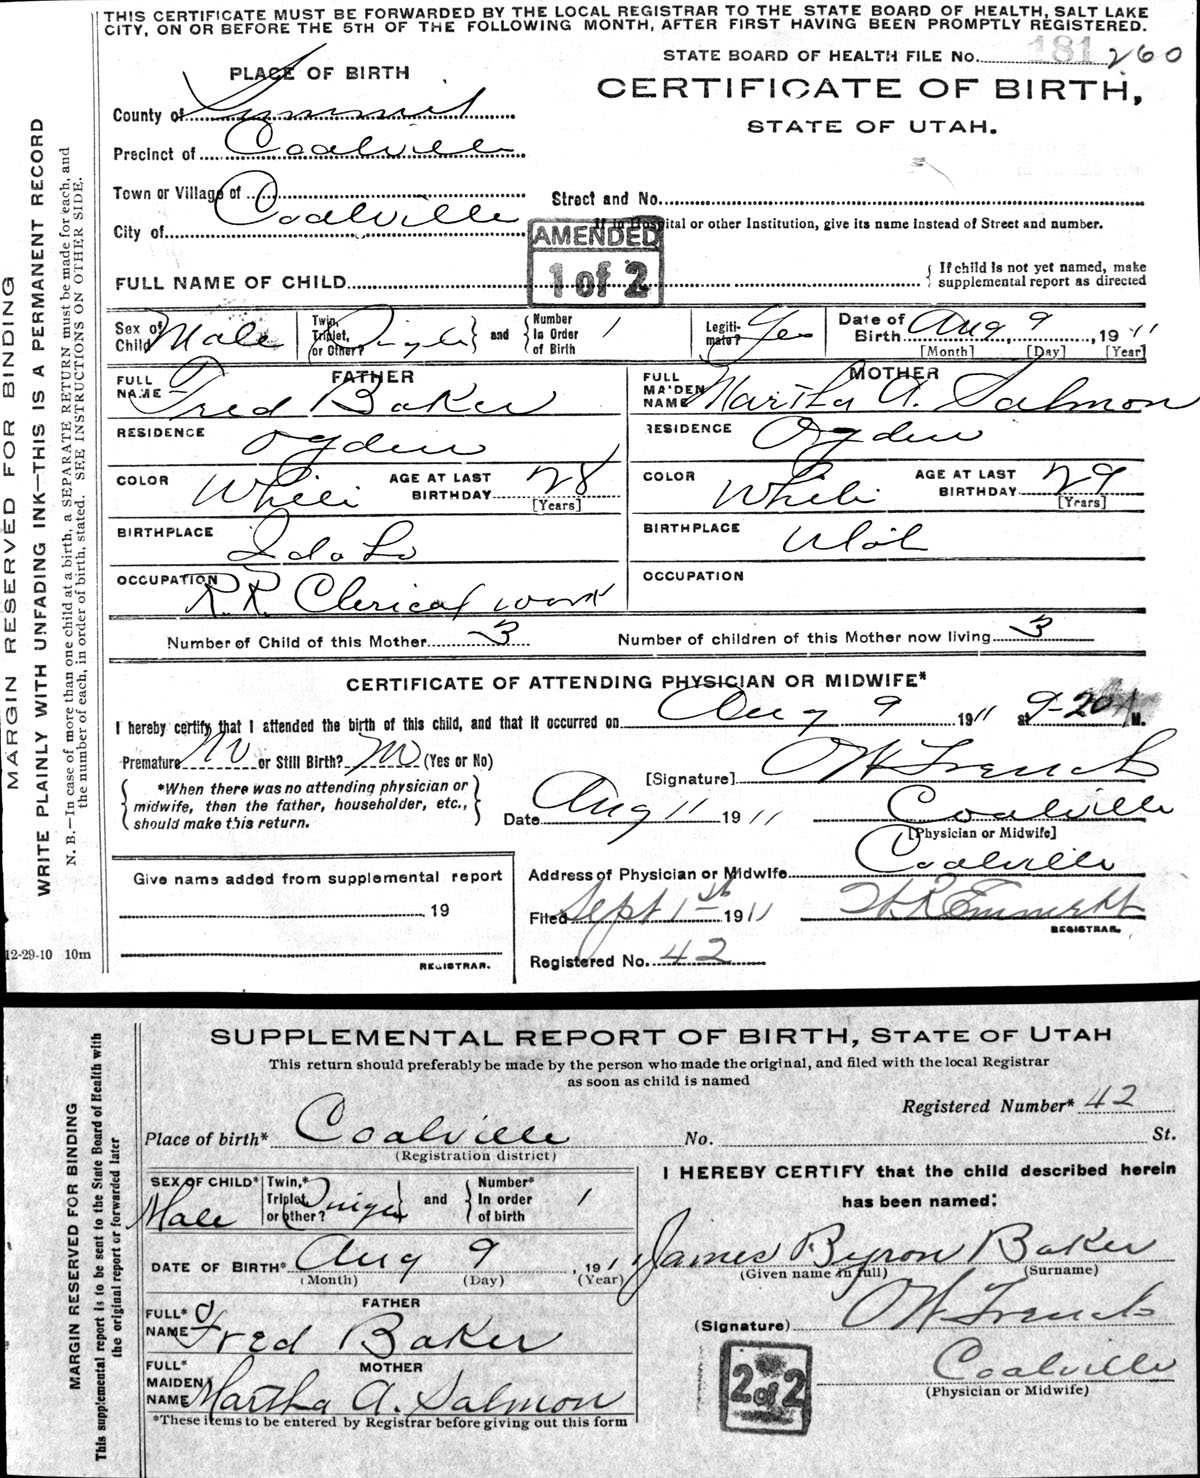 THIS CERTIFICATE MUST BE FORWARDED BY THE LOCAL REGISTRAR TO THE STATE BOARD OF HEALTH, SALT LAKE
CITY, ON OR BEFORE THE 5TH OF THE FOLLOWING MONTH, AFTER FIRST HAVING BEEN PROMPTLY REGISTERED.
MARGIN RESERVED FOR BINDING
WRITE PLAINLY WITH UNFADING INK—THIS IS A PERMANENT RECORD
N. B.—In case of more than one child at a birth, a SEPARATE RETURN must be made for each, and
the number of each, in order of birth, stated. SEE INSTRUCTIONS ON OTHER SIDE.
12-29-10 10m
STATE BOARD OF HEALTH FILE No. 181 260
PLACE OF BIRTH
CERTIFICATE OF BIRTH,
STATE OF UTAH.
County of Summit
Precinct of Coalville
Town or Village of
Street and No.
City of Coalville
If in Hospital or other Institution, give its name instead of Street and number.
AMENDED
1 of 2
FULL NAME OF CHILD
{ If child is not yet named, make
supplemental report as directed
Sex of Child Male
Twin, Triplet, or Other? Single } and { Number In Order of Birth 1
Legiti-mate? Yes
Date of Birth Aug 9, 1911
[Month] [Day] [Year]
FATHER
FULL NAME Fred Baker
MOTHER
FULL MAIDEN NAME Martha A. Salmon
RESIDENCE Ogden
RESIDENCE Ogden
COLOR White AGE AT LAST BIRTHDAY 28 [Years]
COLOR White AGE AT LAST BIRTHDAY 29 [Years]
BIRTHPLACE Idaho
BIRTHPLACE Utah
OCCUPATION R.R. Clerical work
OCCUPATION
Number of Child of this Mother 3 Number of children of this Mother now living 3
CERTIFICATE OF ATTENDING PHYSICIAN OR MIDWIFE*
I hereby certify that I attended the birth of this child, and that it occurred on Aug 9 1911 at 9-20 A M.
Premature No or Still Birth? No (Yes or No)
[Signature] OW French
{ *When there was no attending physician or
midwife, then the father, householder, etc.,
should make this return. }
Date Aug 11 1911 Coalville
[Physician or Midwife]
Address of Physician or Midwife Coalville
Give name added from supplemental report
19
REGISTRAR.
Filed Sept 1st 1911
REGISTRAR.
Registered No. 42
SUPPLEMENTAL REPORT OF BIRTH, STATE OF UTAH
This return should preferably be made by the person who made the original, and filed with the local Registrar
as soon as child is named
MARGIN RESERVED FOR BINDING
This supplemental report is to be sent to the State Board of Health with
the original report or forwarded later
Registered Number* 42
Place of birth* Coalville No. St.
(Registration district)
SEX OF CHILD* Male
Twin,* Triplet, or other? Single } and { Number* In order of birth 1
I HEREBY CERTIFY that the child described herein
has been named:
DATE OF BIRTH* Aug 9, 1911
(Month) (Day) (Year)
James Byron Baker
(Given name in full) (Surname)
FATHER
FULL* NAME Fred Baker
(Signature) OW French
MOTHER
FULL* MAIDEN NAME Martha A. Salmon
Coalville
(Physician or Midwife)
2 of 2
*These items to be entered by Registrar before giving out this form